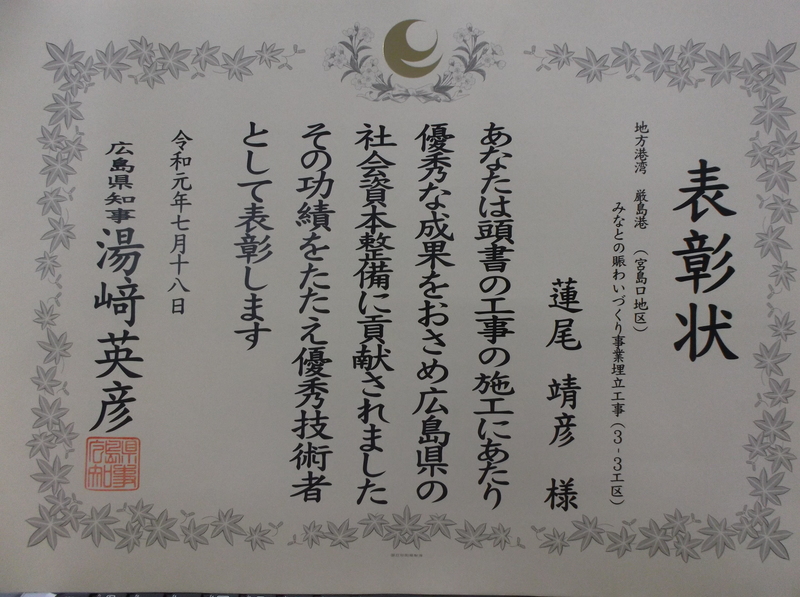 表彰状
地方港湾 厳島港 (宮島口地区)
みなとの賑わいづくり事業埋立工事(3-3工区)
蓮尾 靖彦 様
あなたは頭書の工事の施工にあたり
優秀な成果をおさめ広島県の
社会資本整備に貢献されました
その功績をたたえ優秀技術者
として表彰します
令和元年七月十八日
広島県知事 湯﨑英彦